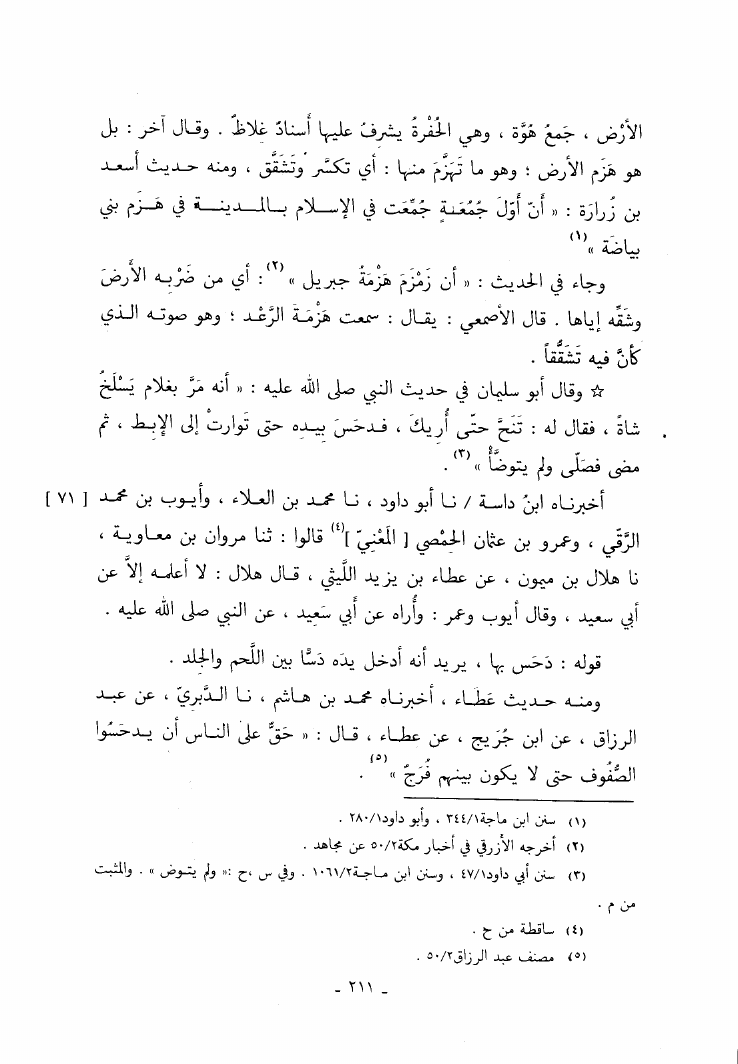 الأرْض ، جَمعُ هُوَّة ، وهي الحُفْرةُ يشرفُ عليها أَسنادٌ غِلاظٌ . وقال آخر : بل
هو هَزم الأرض ؛ وهو ما تَهَزَّمَ منها : أي تكسَّر وتَشَقَّق ، ومنه حديث أسعد
بن زُرارَة : « أَنّ أَوَّلَ جُمُعَةٍ جُمِّعَت في الإسلام بالمدينة في هَزم بني
بياضَة »(١)
وجاء في الحديث : « أن زَمْزَمَ هَزْمَةُ جبريل »(٢) : أي من ضَرْبِه الأرضَ
وشَقِّه إياها . قال الأصمعي : يقال : سمعت هَزْمَةَ الرَّعْد ؛ وهو صوته الذي
كأنَّ فيه تَشَقُّقاً .
☆ وقال أبو سليمان في حديث النبي صلى الله عليه : « أنه مَرَّ بغلام يَسْلَخُ
شاةً ، فقال له : تَنَحَّ حتّى أُرِيكَ ، فدحَسَ بيده حتى تَوارتْ إلى الإبط ، ثم
مضى فصَلّى ولم يتوضَّأْ »(٣) .
أخبرناه ابنُ داسة / نا أبو داود ، نا محمد بن العلاء ، وأيوب بن محمد [ ٧١ ]
الرَّقِّي ، وعمرو بن عثمان الحِمْصي [ المَعْنِيّ ](٤) قالوا : ثنا مروان بن معاوية ،
نا هلال بن ميمون ، عن عطاء بن يزيد اللَّيثي ، قال هلال : لا أعلمه إلاَّ عن
أبي سعيد ، وقال أيوب وعمر : وأُراه عن أَبي سَعِيد ، عن النبي صلى الله عليه .
قوله : دَحَس بها ، يريد أنه أدخل يدَه دَسًّا بين اللَّحم والجلد .
ومنه حديث عَطَاء ، أخبرناه محمد بن هاشم ، نا الدَّبَريّ ، عن عبد
الرزاق ، عن ابن جُرَيج ، عن عطاء ، قال : « حَقٌّ على الناس أن يدحَسُوا
الصُّفُوف حتى لا يكون بينهم فُرَجٌ »(٥) .
(١) سنن ابن ماجة ٣٤٤/١ ، وأبو داود ٢٨٠/١ .
(٢) أخرجه الأزرقي في أخبار مكة ٥٠/٢ عن مجاهد .
(٣) سنن أبي داود ٤٧/١ ، وسنن ابن ماجة ١٠٦١/٢ . وفي س ، ح : « ولم يتوض » . والمثبت
من م .
(٤) ساقطة من ح .
(٥) مصنف عبد الرزاق ٥٠/٢ .
ـ ٢١١ ـ